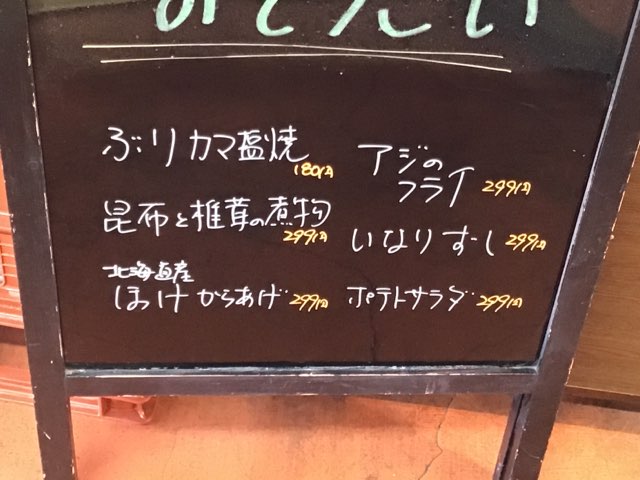 ぶりカマ塩焼
180円
昆布と椎茸の煮物
299円
北海道産
ほっけからあげ 299円
アジの
フライ 299円
いなりずし 299円
ポテトサラダ 299円